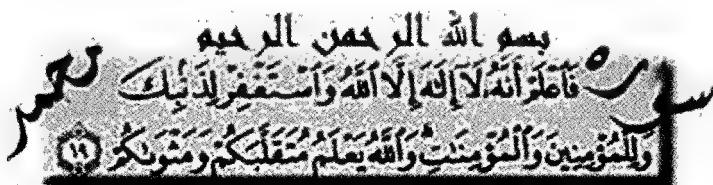 بسم الله الرحمن الرحيم
سورة
فَٱعْلَمْ أَنَّهُۥ لَآ إِلَٰهَ إِلَّا ٱللَّهُ وَٱسْتَغْفِرْ لِذَنۢبِكَ
محمد
وَلِلْمُؤْمِنِينَ وَٱلْمُؤْمِنَٰتِ ۗ وَٱللَّهُ يَعْلَمُ مُتَقَلَّبَكُمْ وَمَثْوَىٰكُمْ ١٩